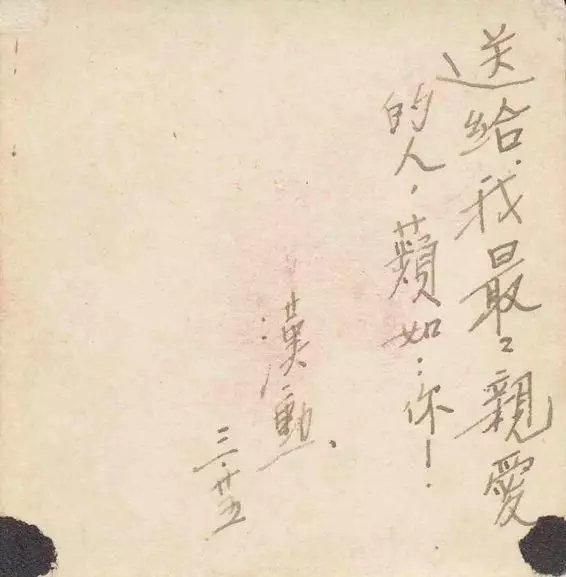 送給我最々親愛
的人，蘋如：你！
漢勳、
三．廿五